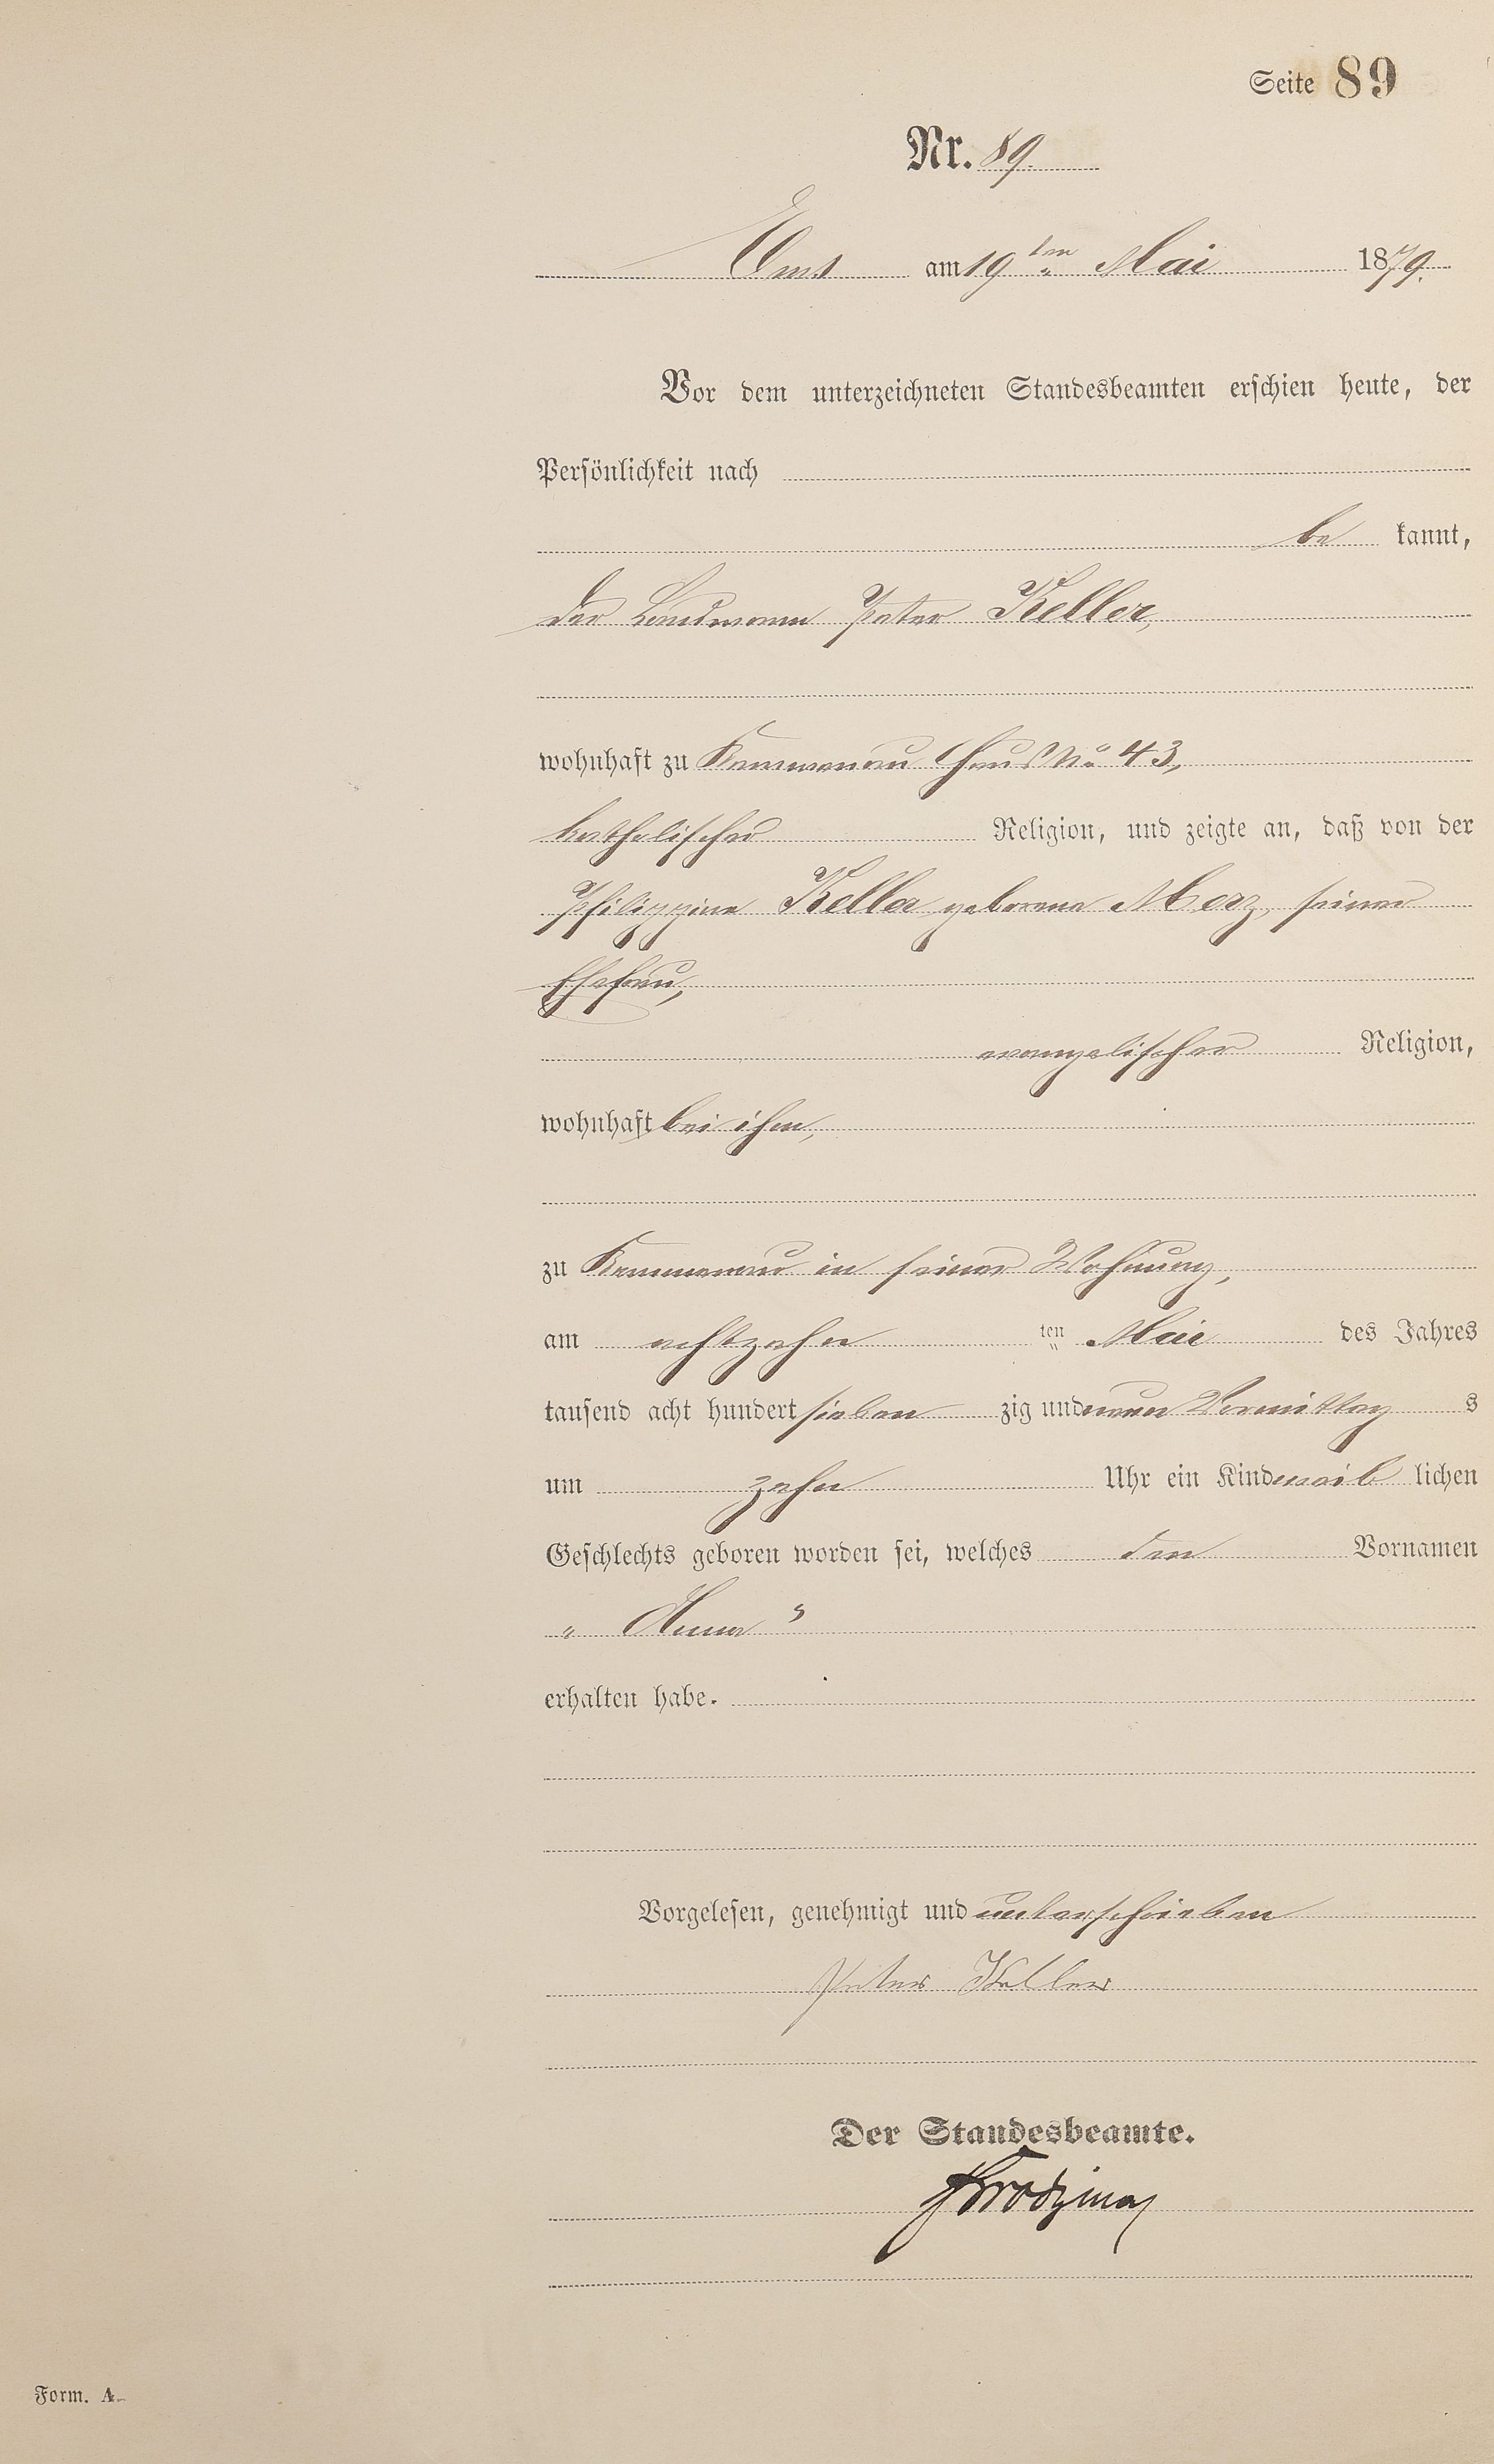 Seite 89
Nr. 89.
Ems am 19ten Mai 1879.
Vor dem unterzeichneten Standesbeamten erschien heute, der
Persönlichkeit nach
be kannt,
der Landmann Peter Keller,
wohnhaft zu Kemmenau Haus No 43,
katholischer Religion, und zeigte an, daß von der
Philippine Keller geborene Merz, seiner
Ehefrau,
evangelischer Religion,
wohnhaft bei ihm,
zu Kemmenau in seiner Wohnung,
am achtzehn ten Mai des Jahres
tausend acht hundert sieben zig und neun Vormittag s
um zehn Uhr ein Kind weib lichen
Geschlechts geboren worden sei, welches den Vornamen
„ Anna "
erhalten habe.
Vorgelesen, genehmigt und unterschrieben
Peter Keller
Der Standesbeamte.
Form. A.